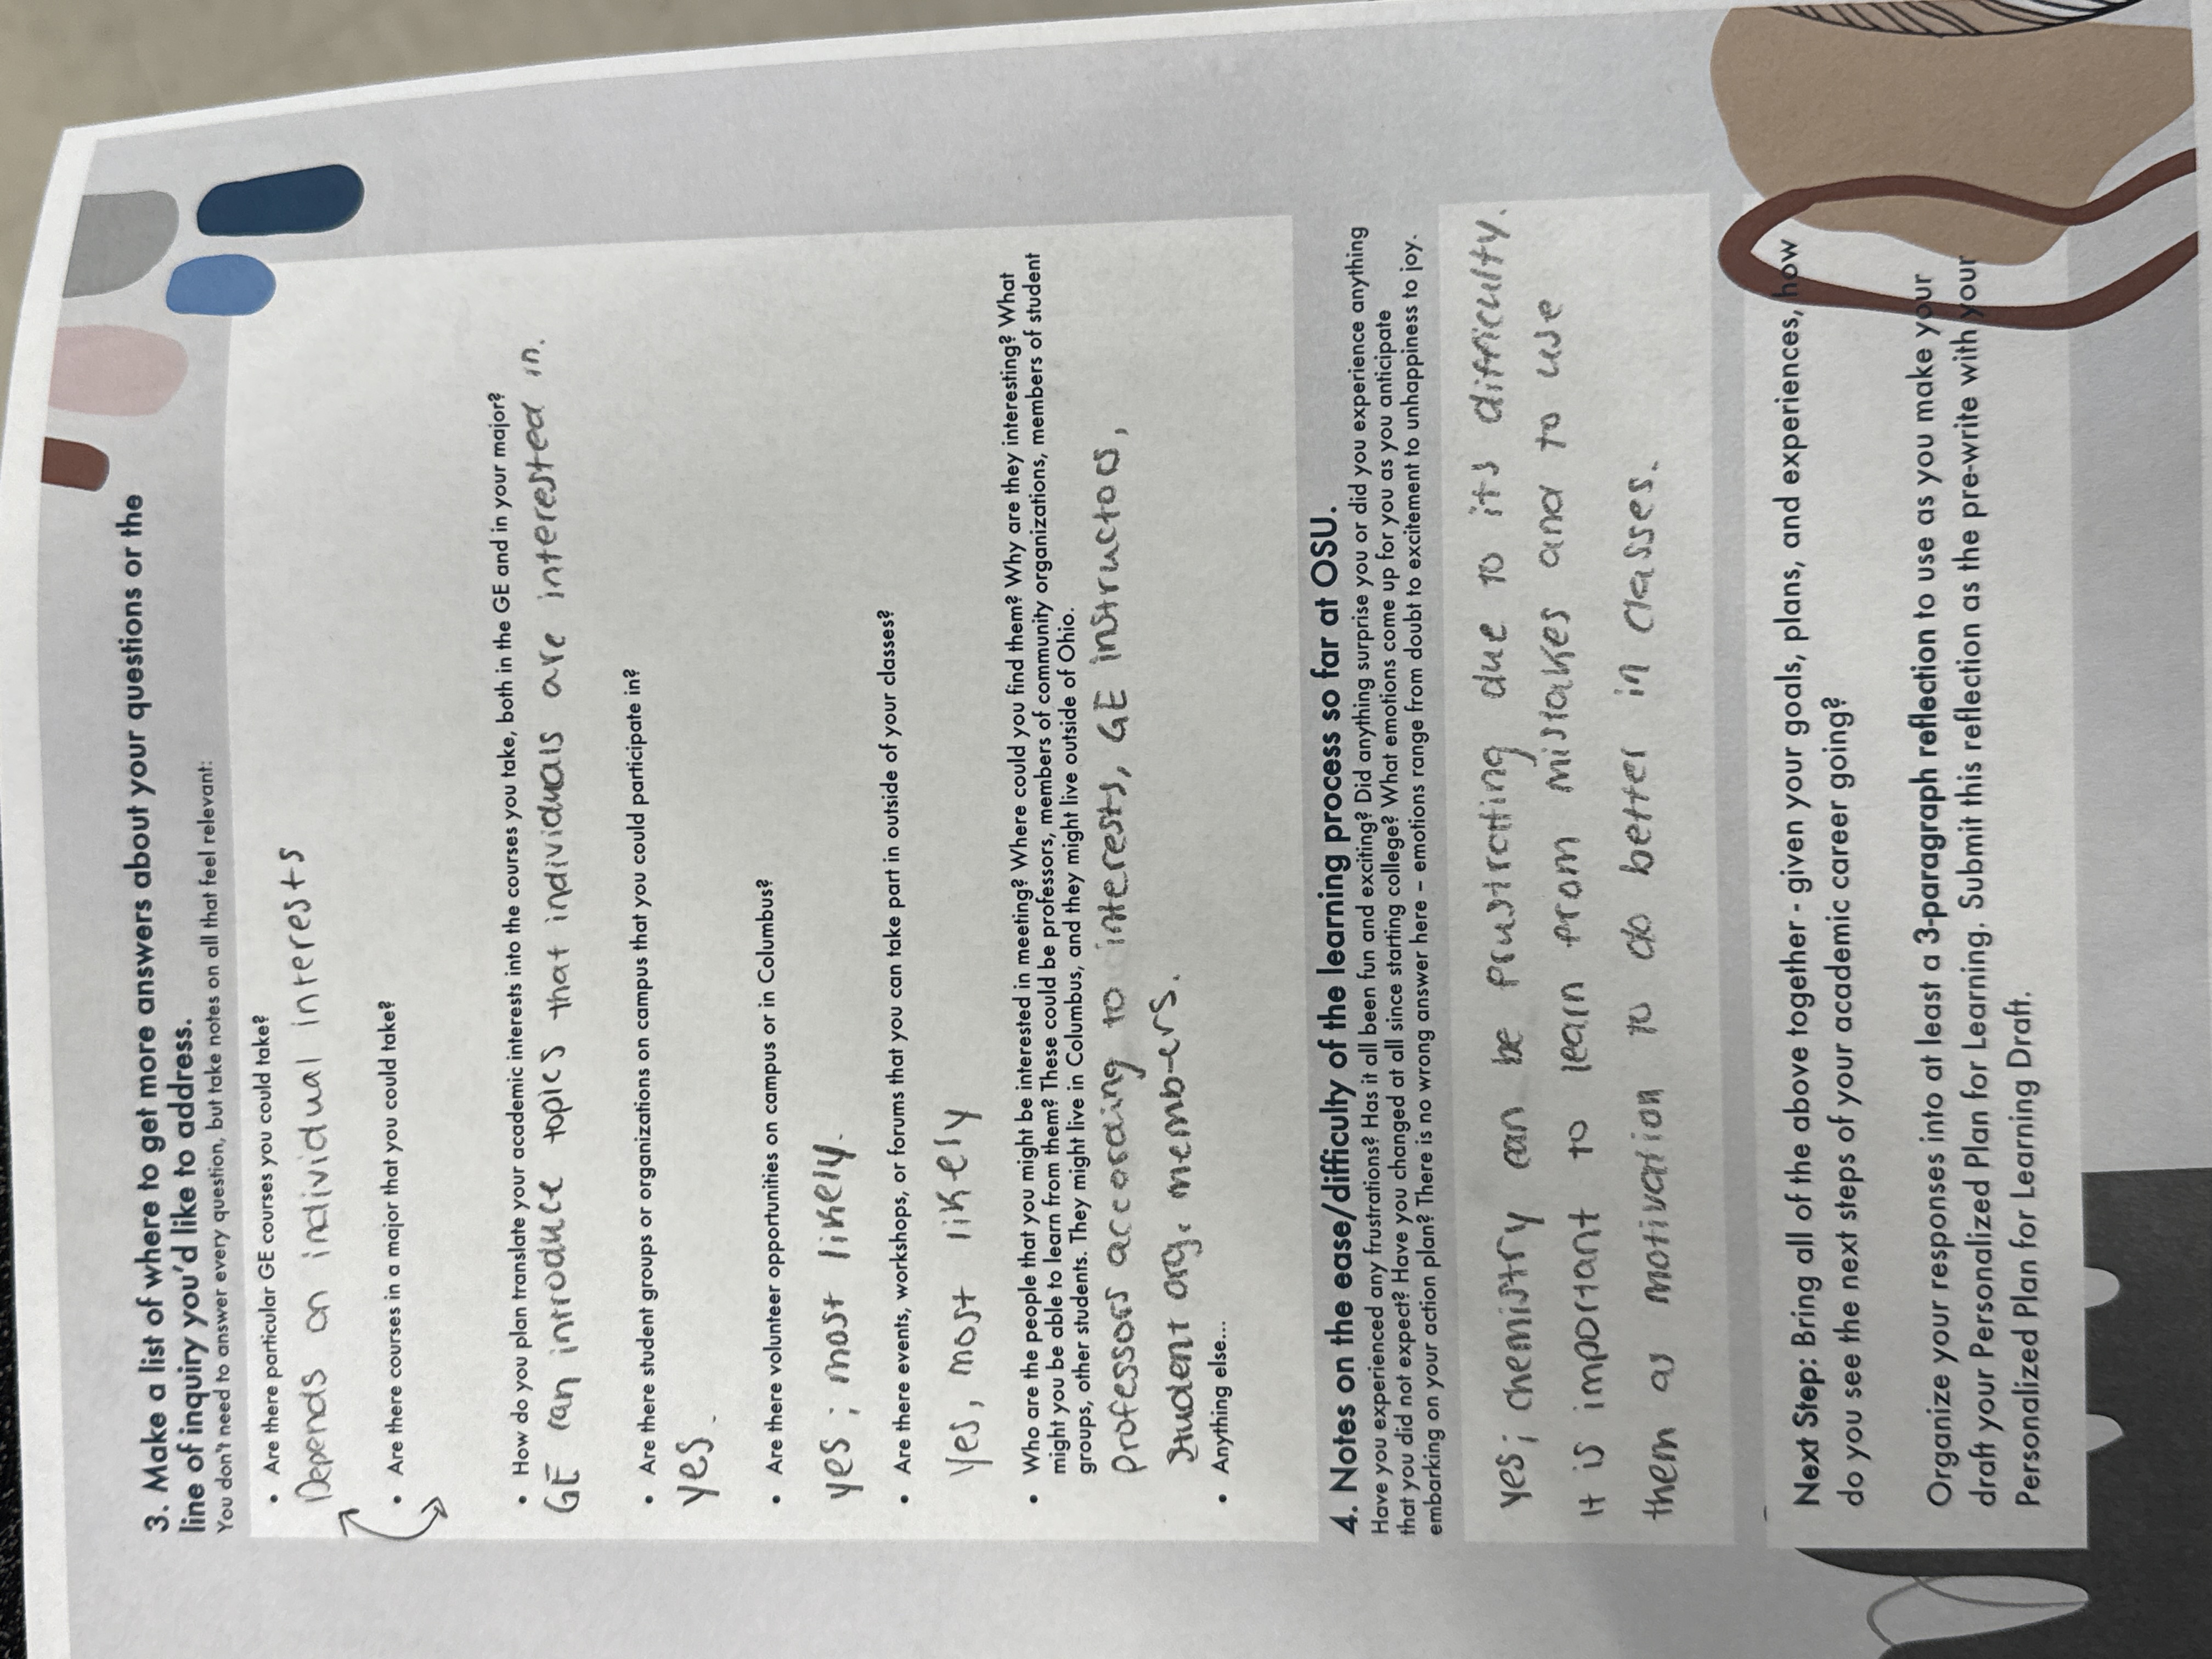 3. Make a list of where to get more answers about your questions or the
line of inquiry you'd like to address.
You don't need to answer every question, but take notes on all that feel relevant:
• Are there particular GE courses you could take?
Depends on individual interests
• Are there courses in a major that you could take?
• How do you plan translate your academic interests into the courses you take, both in the GE and in your major?
GE can introduce topics that individuals are interested in.
• Are there student groups or organizations on campus that you could participate in?
yes.
• Are there volunteer opportunities on campus or in Columbus?
yes; most likely.
• Are there events, workshops, or forums that you can take part in outside of your classes?
Yes, most likely
• Who are the people that you might be interested in meeting? Where could you find them? Why are they interesting? What
might you be able to learn from them? These could be professors, members of community organizations, members of student
groups, other students. They might live in Columbus, and they might live outside of Ohio.
Professors according to interests, GE instructors,
Student org. members.
• Anything else...
4. Notes on the ease/difficulty of the learning process so far at OSU.
Have you experienced any frustrations? Has it all been fun and exciting? Did anything surprise you or did you experience anything
that you did not expect? Have you changed at all since starting college? What emotions come up for you as you anticipate
embarking on your action plan? There is no wrong answer here – emotions range from doubt to excitement to unhappiness to joy.
yes; chemistry can be frustrating due to its difficulty.
It is important to learn from mistakes and to use
them as motivation to do better in classes.
Next Step: Bring all of the above together - given your goals, plans, and experiences, how
do you see the next steps of your academic career going?
Organize your responses into at least a 3-paragraph reflection to use as you make your
draft your Personalized Plan for Learning. Submit this reflection as the pre-write with your
Personalized Plan for Learning Draft.